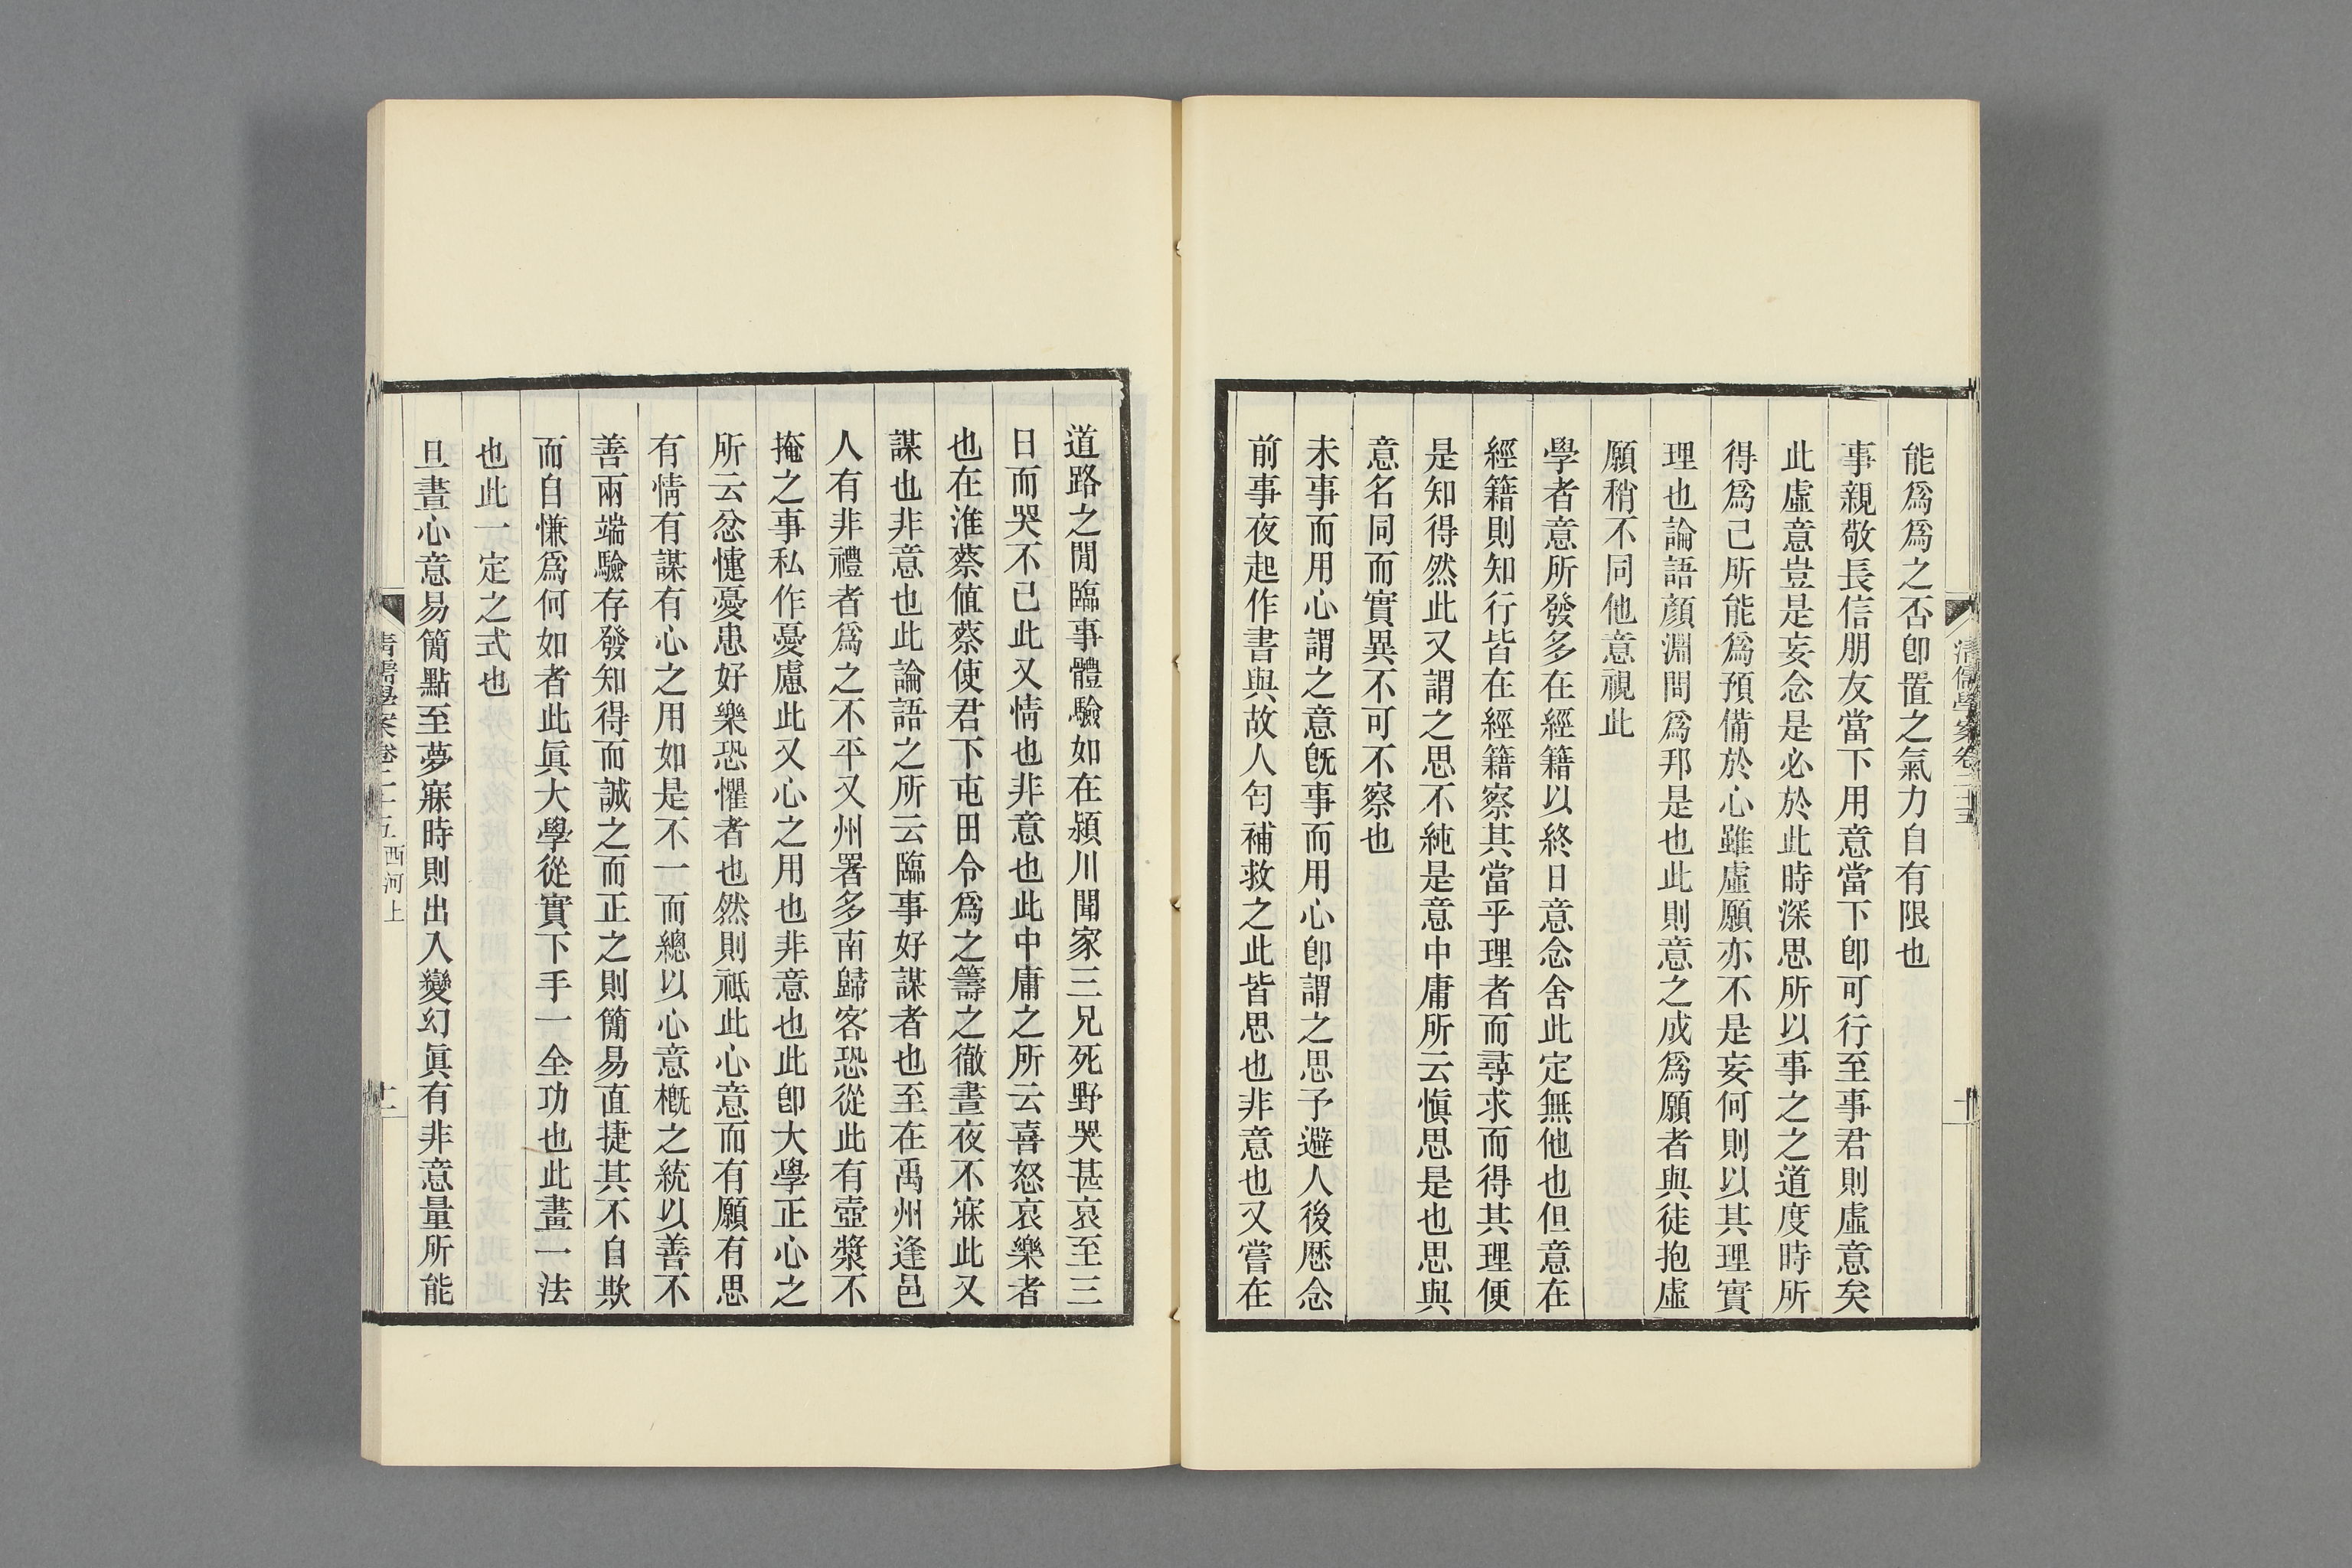 清儒學案卷二十五
能爲爲之否卽置之氣力自有限也
事親敬長信朋友當下用意當下卽可行至事君則虛意矣
此虛意豈是妄念是必於此時深思所以事之之道度時所
得爲己所能爲預備於心雖虛願亦不是妄何則以其理實
理也論語顏淵問爲邦是也此則意之成爲願者與徒抱虛
願稍不同他意視此
學者意所發多在經籍以終日意念舍此定無他也但意在
經籍則知行皆在經籍察其當乎理者而尋求而得其理便
是知得然此又謂之思不純是意中庸所云愼思是也思與
意名同而實異不可不察也
未事而用心謂之意旣事而用心卽謂之思予避人後歷念
前事夜起作書與故人匄補救之此皆思也非意也又嘗在
道路之閒臨事體驗如在潁川聞家三兄死野哭甚哀至三
日而哭不已此又情也非意也此中庸之所云喜怒哀樂者
也在淮蔡值蔡使君下屯田令爲之籌之徹晝夜不寐此又
謀也非意也此論語之所云臨事好謀者也至在禹州逢邑
人有非禮者爲之不平又州署多南歸客恐從此有壺漿不
掩之事私作憂慮此又心之用也非意也此卽大學正心之
所云忿懥憂患好樂恐懼者也然則祗此心意而有願有思
有情有謀有心之用如是不一而總以心意槪之統以善不
善兩端驗存發知得而誠之而正之則簡易直捷其不自欺
而自慊爲何如者此眞大學從實下手一全功也此畫一法
也此一定之式也
旦晝心意易簡點至夢寐時則出入變幻眞有非意量所能
清儒學案卷二十五 西河上
十一